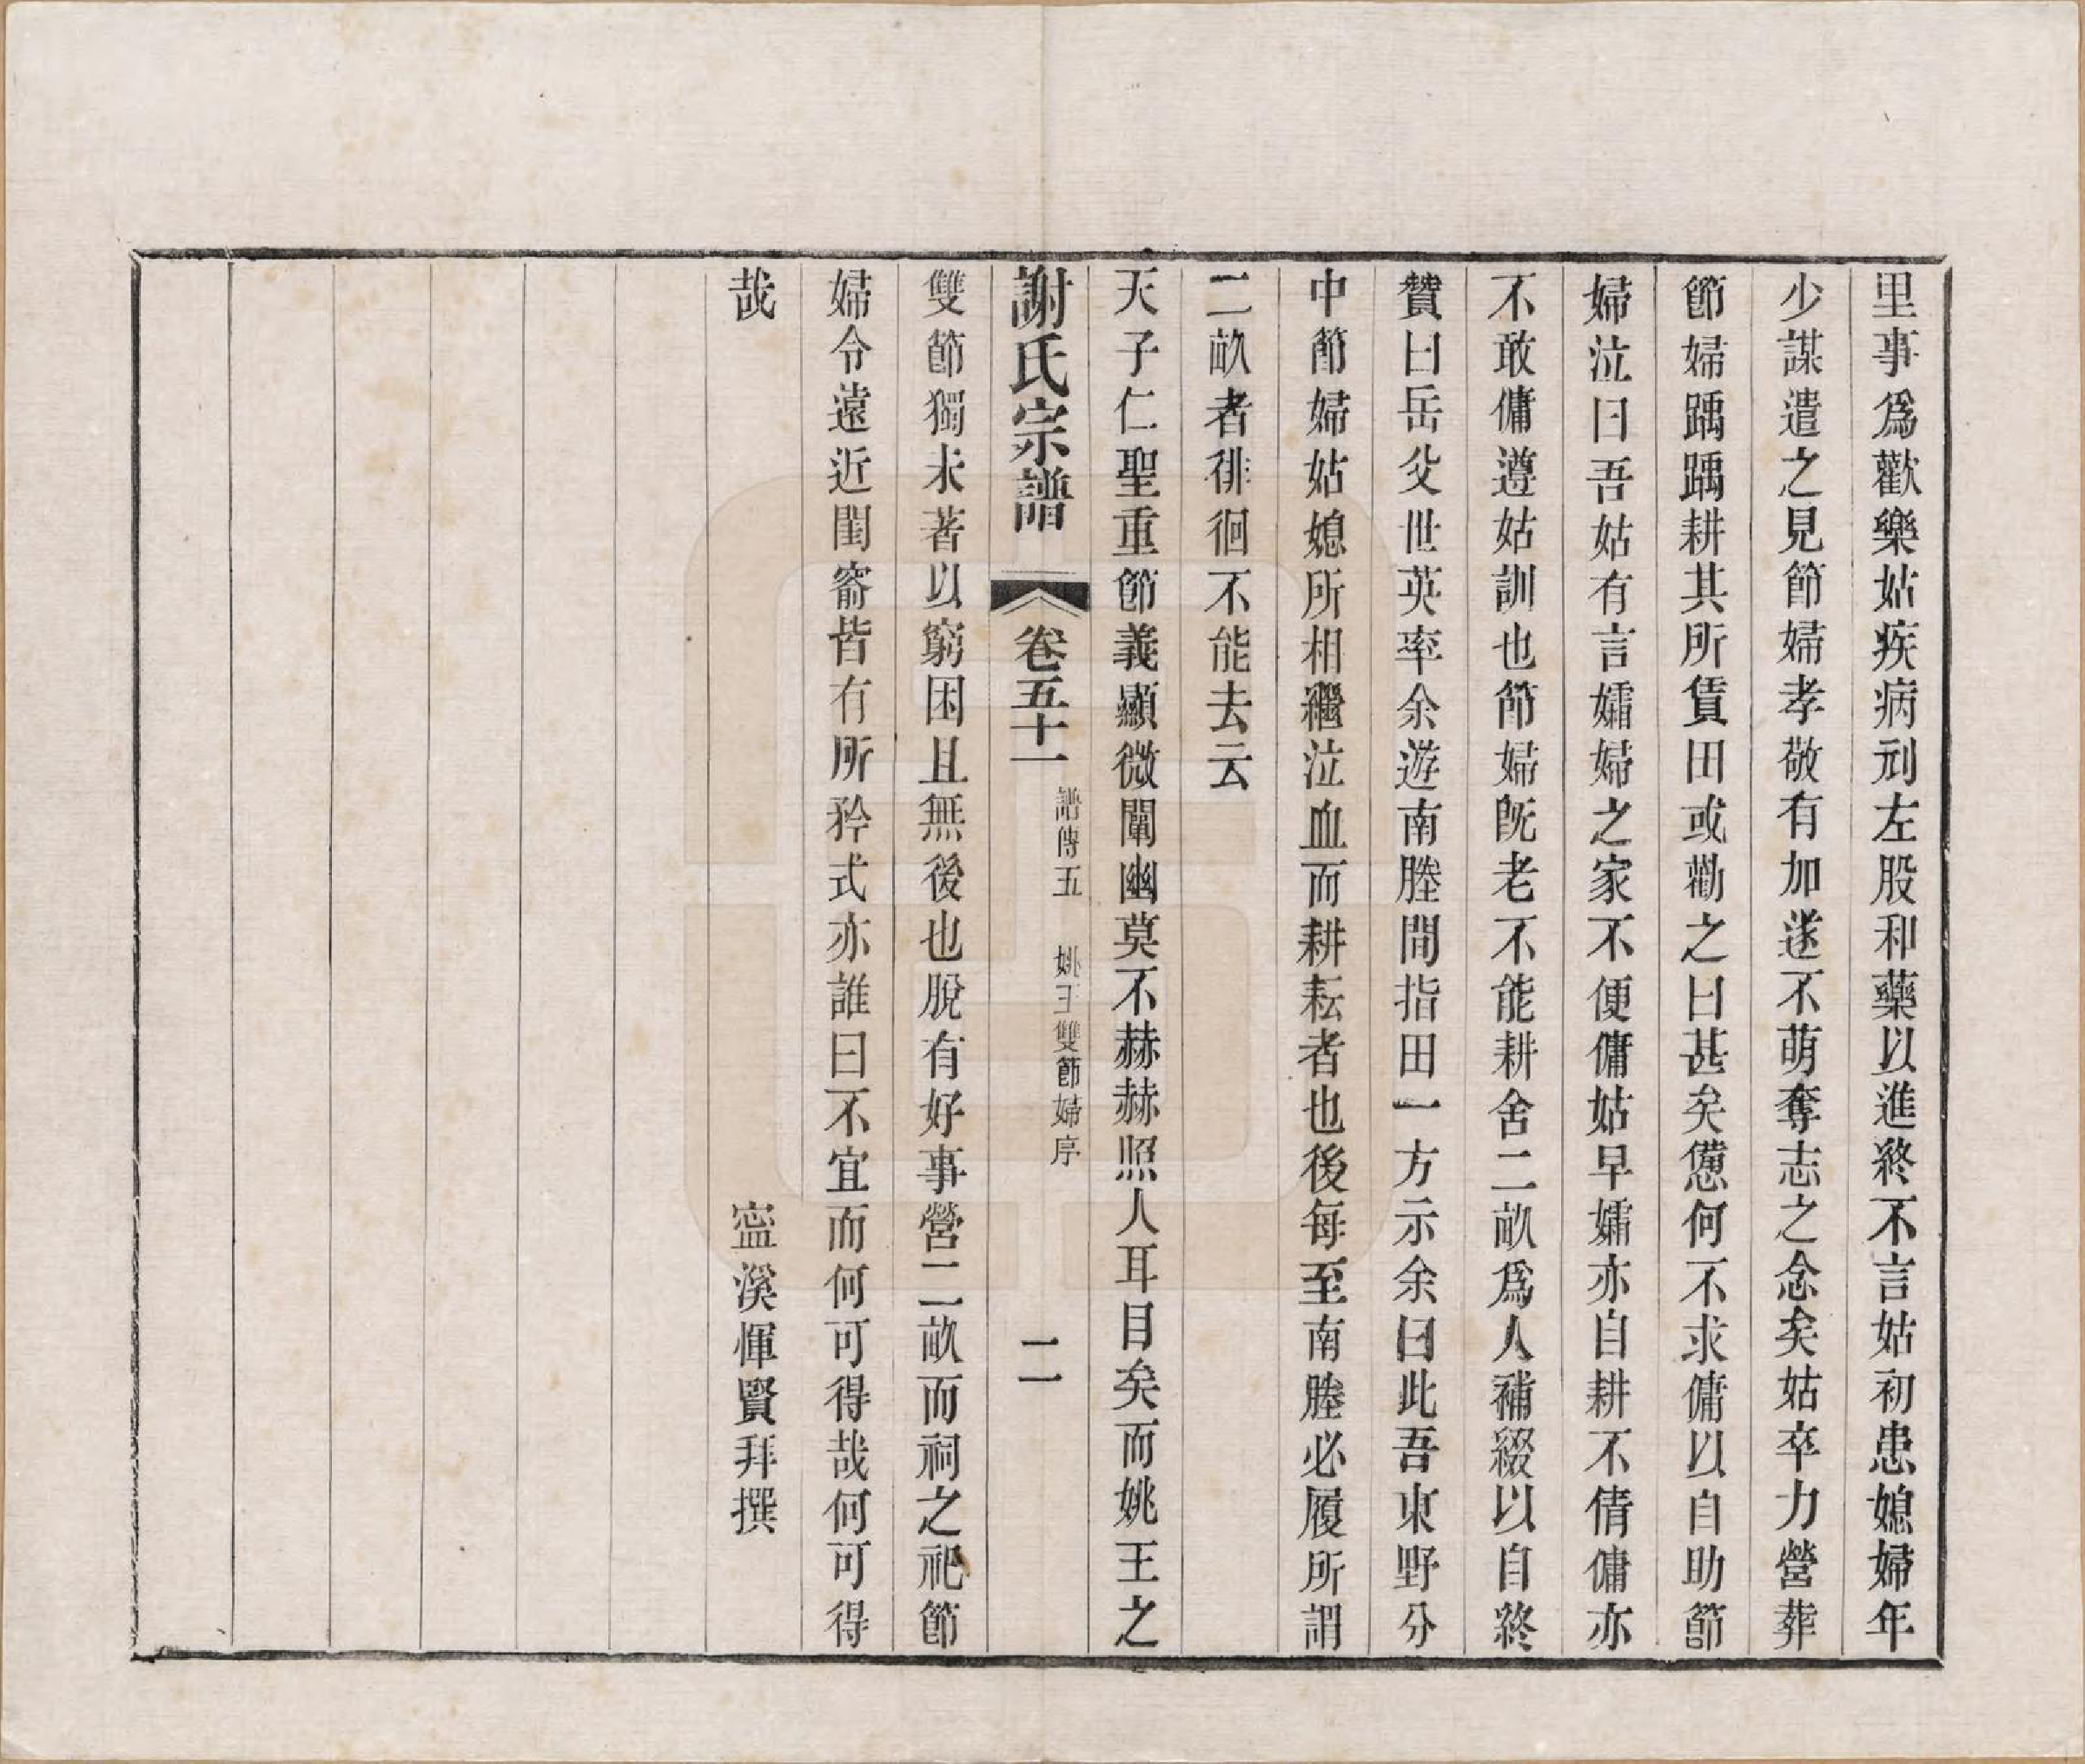 里事爲歡樂姑疾病刲左股和藥以進終不言姑初患媳婦年
少謀遣之見節婦孝敬有加遂不萌奪志之念矣姑卒力營葬
節婦踽踽耕其所賃田或勸之曰甚矣憊何不求傭以自助節
婦泣曰吾姑有言孀婦之家不便傭姑早孀亦自耕不倩傭亦
不敢傭遵姑訓也節婦旣老不能耕舍二畝爲人補綴以自終
贊曰岳父世英率余遊南塍間指田一方示余曰此吾東野分
中節婦姑媳所相繼泣血而耕耘者也後每至南塍必履所謂
二畝者徘徊不能去云
天子仁聖重節義顯微闡幽莫不赫赫照人耳目矣而姚王之
謝氏宗譜 卷五十一 譜傳五 姚王雙節婦序 二
雙節獨未著以窮困且無後也脫有好事營二畝而祠之祀節
婦令遠近閨窬皆有所矜式亦誰曰不宜而何可得哉何可得
哉 寍溪惲賢拜撰